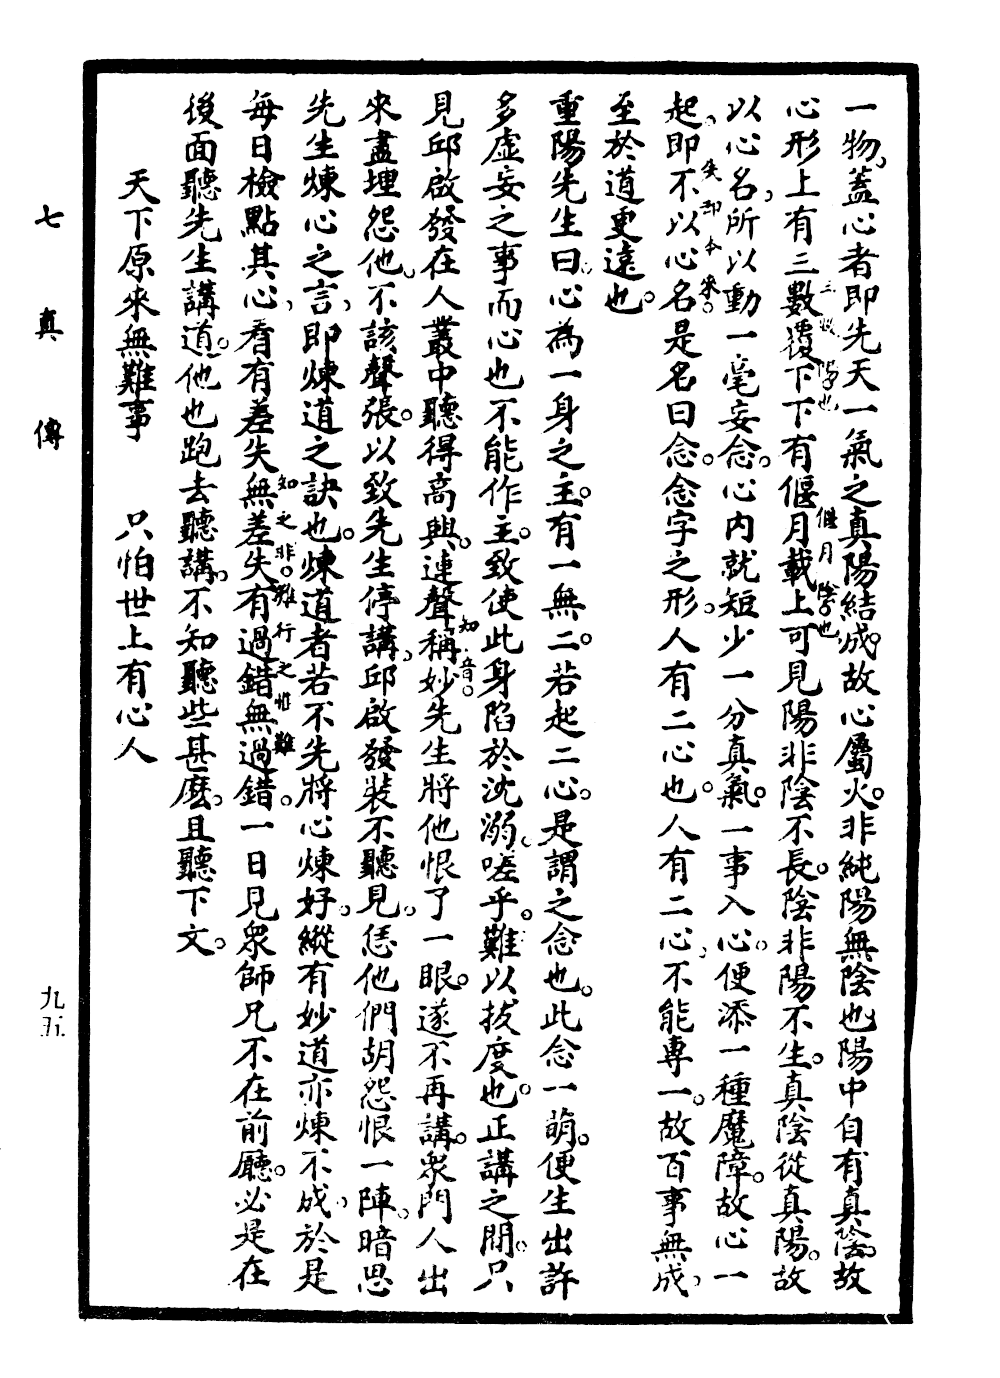 一物，蓋心者即先天一氣之真陽結成。故心屬火。非純陽無陰也陽中自有真陰。故
心形上有三數覆下下有偃月載上可見陽非陰不長。陰非陽不生。真陰從真陽。故
三數陽也
偃月陰也
以心名，所以動一毫妄念。心內就短少一分真氣。一事入心。便添一種魔障。故心一
起。即不以心名是名曰念。念字之形。人有二心也。人有二心，不能專一。故百事無成，
失却本來。
至於道更遠也。
重陽先生曰。心為一身之主。有一無二。若起二心。是謂之念也。此念一萌。便生出許
多虛妄之事而心也不能作主。致使此身陷於沈溺。嗟乎。難以拔度也。正講之間。只
見邱啟發在人叢中聽得高興。連聲稱妙先生將他恨了一眼。遂不再講。眾門人出
知音。
來盡埋怨他。不該聲張。以致先生停講，邱啟發裝不聽見。恁他們胡怨恨一陣。暗思
先生煉心之言，即煉道之訣也。煉道者若不先將心煉好。縱有妙道亦煉不成，於是
每日檢點其心，看有差失無差失有過錯無過錯。一日見眾師兄不在前廳。必是在
知之非。難行之惟難
後面聽先生講道。他也跑去聽講。不知聽些甚麽。且聽下文。
天下原來無難事　只怕世上有心人
七真傳
九五